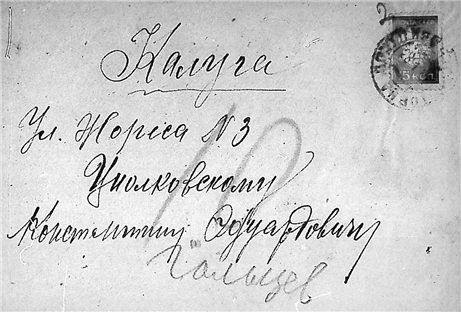 Калуга
Ул. Жореса N 3
Циолковскому
Константину Эдуардовичу
Гольцев
5 коп